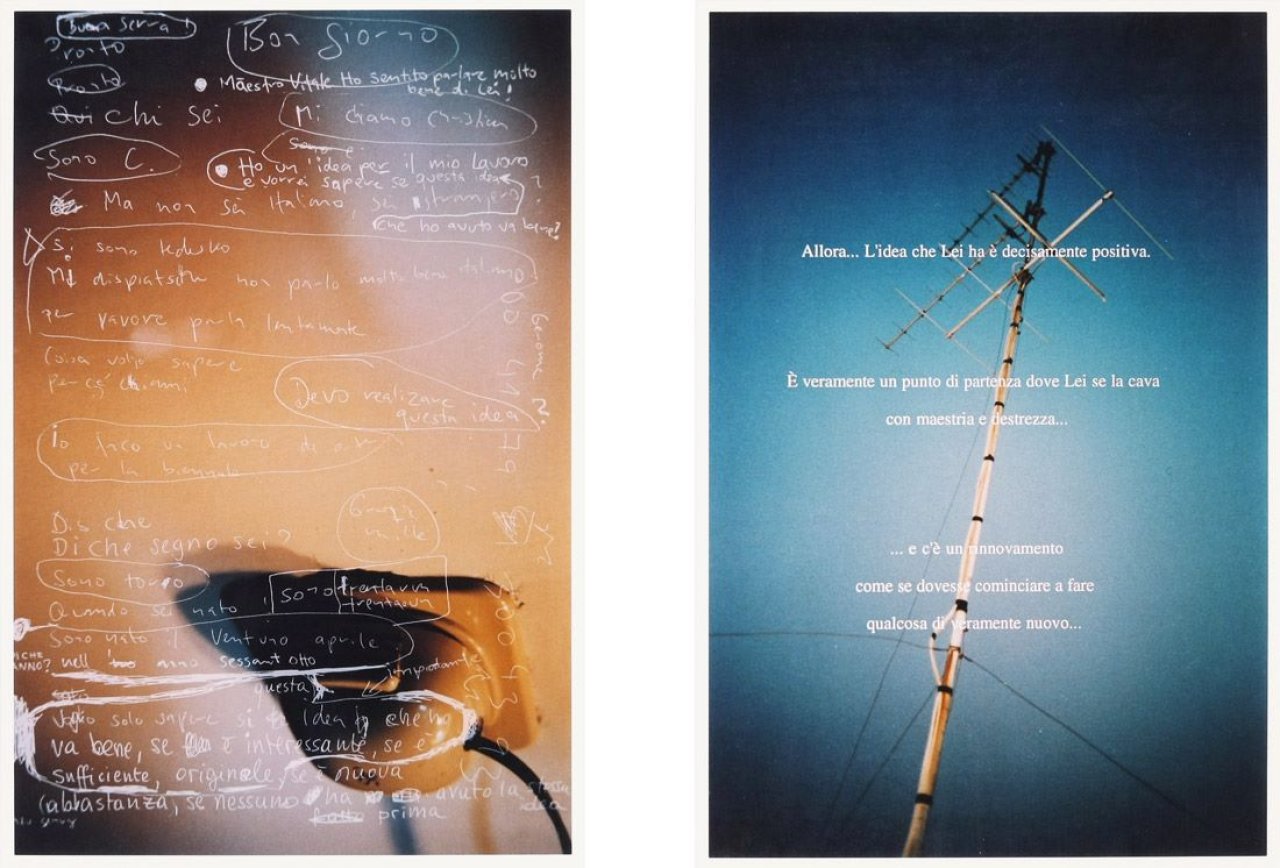 Buona Serra!
Pronto
Pronto
Bon Giorno
Maestro Vitale Ho sentito parlare molto
bene di Lei!
chi sei
Mi chiamo
Sono C.
Ho un'idea per il mio lavoro
e vorrei sapere se questa idea
che ho avuto va bene?
Ma non sei Italiano, sei stranjero?
Si sono
Mi non parlo molto bene italiano
per vavore parla lentamente
sapere
Devo realizare
questa idea
Io faco un lavoro di
per la biennale
Grazie
mille
Dis che
Di che segno sei?
Sono toro
Quando sei nato
sono
trentaun
Sono nato il Ventuno aprile
DI CHE
ANNO?
nell anno sessant otto
importante
questa
voglio solo sapere si Idea che ho
va bene, se è interessante, se è
sufficiente, originale, se è nuova
(abbastanza, se nessuno ha avuto la stessa
idea
prima
Allora... L'idea che Lei ha è decisamente positiva.
È veramente un punto di partenza dove Lei se la cava
con maestria e destrezza...
... e c'è un rinnovamento
come se dovesse cominciare a fare
qualcosa di veramente nuovo...